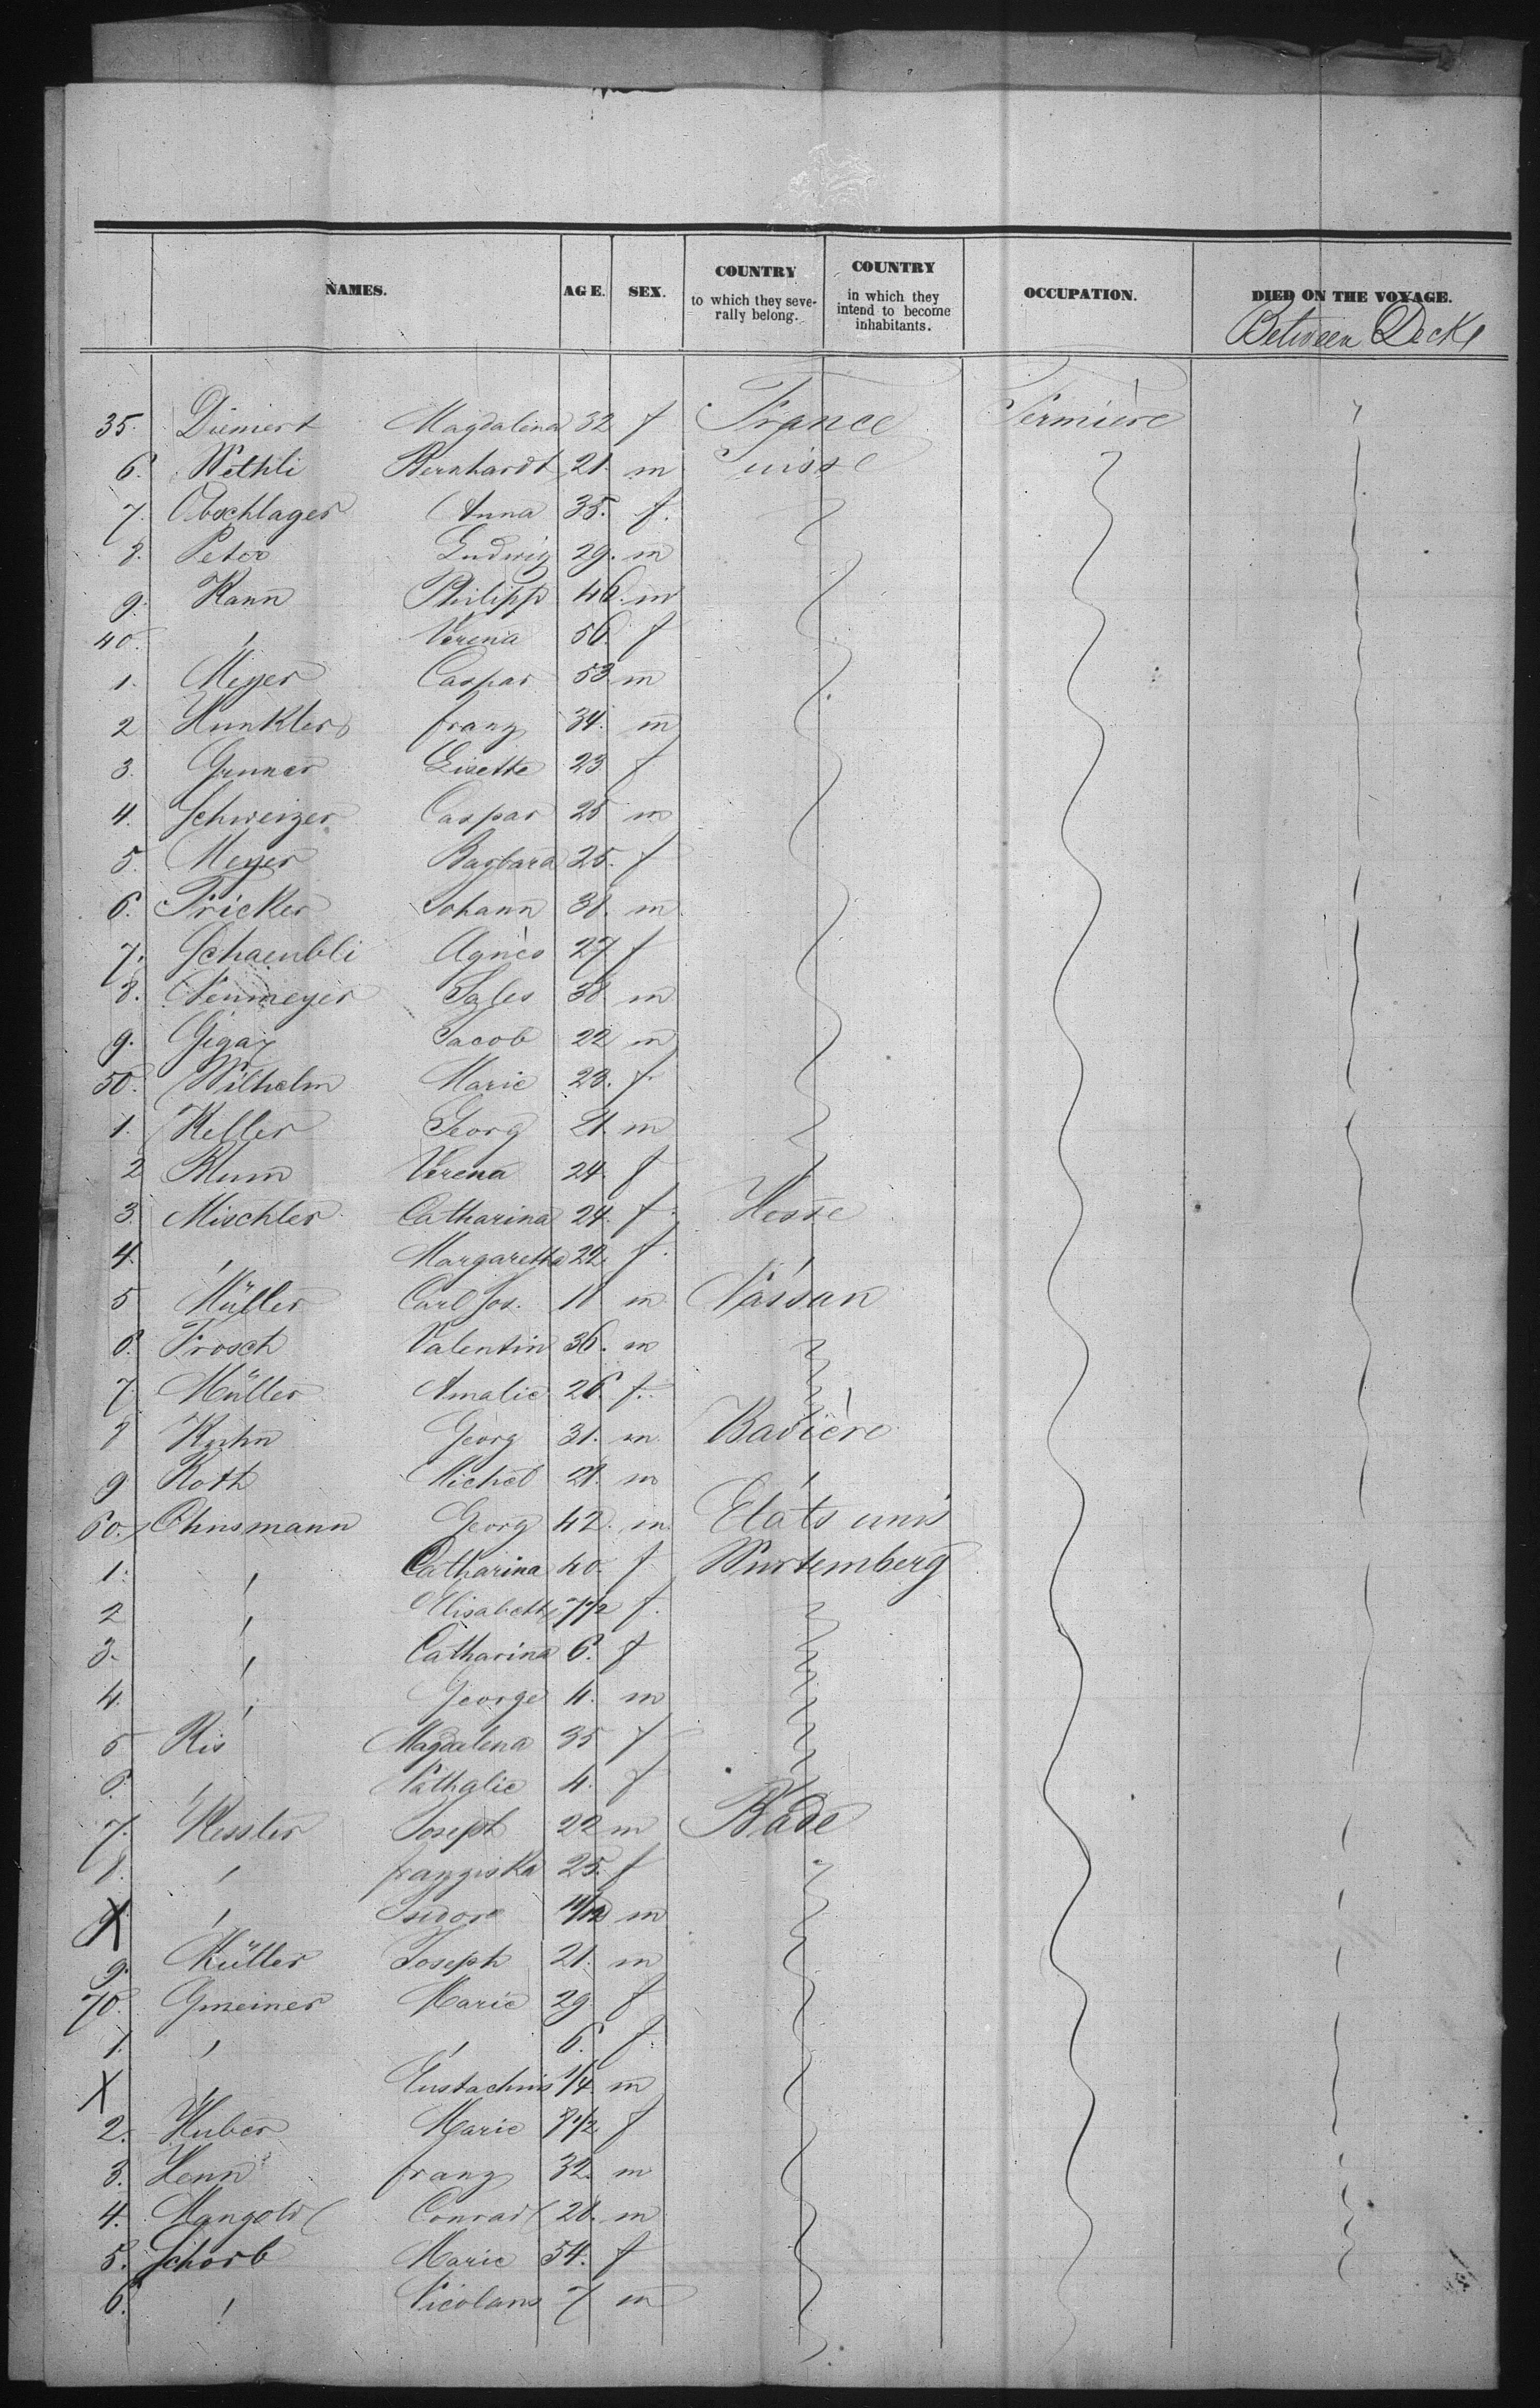 NAMES. AGE. SEX. COUNTRY to which they seve- rally belong. COUNTRY in which they intend to become inhabitants. OCCUPATION. DIED ON THE VOYAGE.
Between Deck
35. Diemert Magdalena 32 f France Fermière
6. Wethli Bernhardt 21. m Suisse
7. Obschlager Anna 35. f.
8. Peter Ludwig 29. m
9. Kann Philipp 46. m
40. , Verena 56. f
1. Meyer Caspar 53 m
2 Hunkler franz 34. m
3. Gunner Lisette 23 f
4. Schweizer Caspar 25 m
5. Meyer Barbara 25. f
6. Fricker Johann 31. m
7. Schaeubli Agnès 27 f
8. Neumeyer Sales 38 m
9. Gigax Jacob 22 m
50. Wilhelm Marie 23. f
1. Keller Georg 21. m
2 Blum Verena 24. f
3. Mischler Catharina 24. f. Hesse
4. , Margaretha 22 f. ,
5 Müller Carl Jos. 11 m Nassau
6. Frosch Valentin 36. m
7. Müller Amalie 26. f.
8 Kuhn Georg 31. m. Bavière
9 Roth Michel 21. m ,
60. Ohnsmann Georg 42. m. Etats unis
1. , Catharina 40. f Wurtemberg
2 , Elisabeth 7 1/2 f.
3. , Catharina 6. f
4. , George 4. m
5 Ris Magdalena 35 f
6. , Nathalie 4. f
7. Kessler Joseph 22 m Bade
8. , franziska 25. f
X , Isidore 11/12 m
9. Müller Joseph 21. m
70. Gmeiner Marie 29. f
1. , , 6. f.
X , Eustachius 1/4. m
2. Huber Marie 7 1/2 f
3. Henn franz 32. m
4. Mangold Conrad 28. m
5. Schorb Marie 54. f
6. , Nicolaus 7 m